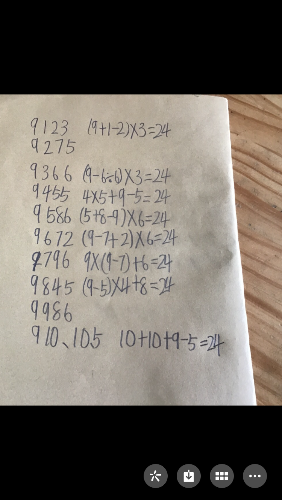 9123 (9+1-2)×3=24
9275
9366 (9-6÷6)×3=24
9455 4×5+9-5=24
9586 (5+8-9)×6=24
9672 (9-7+2)×6=24
9796 9×(9-7)+6=24
9845 (9-5)×4+8=24
9986
910、105 10+10+9-5=24